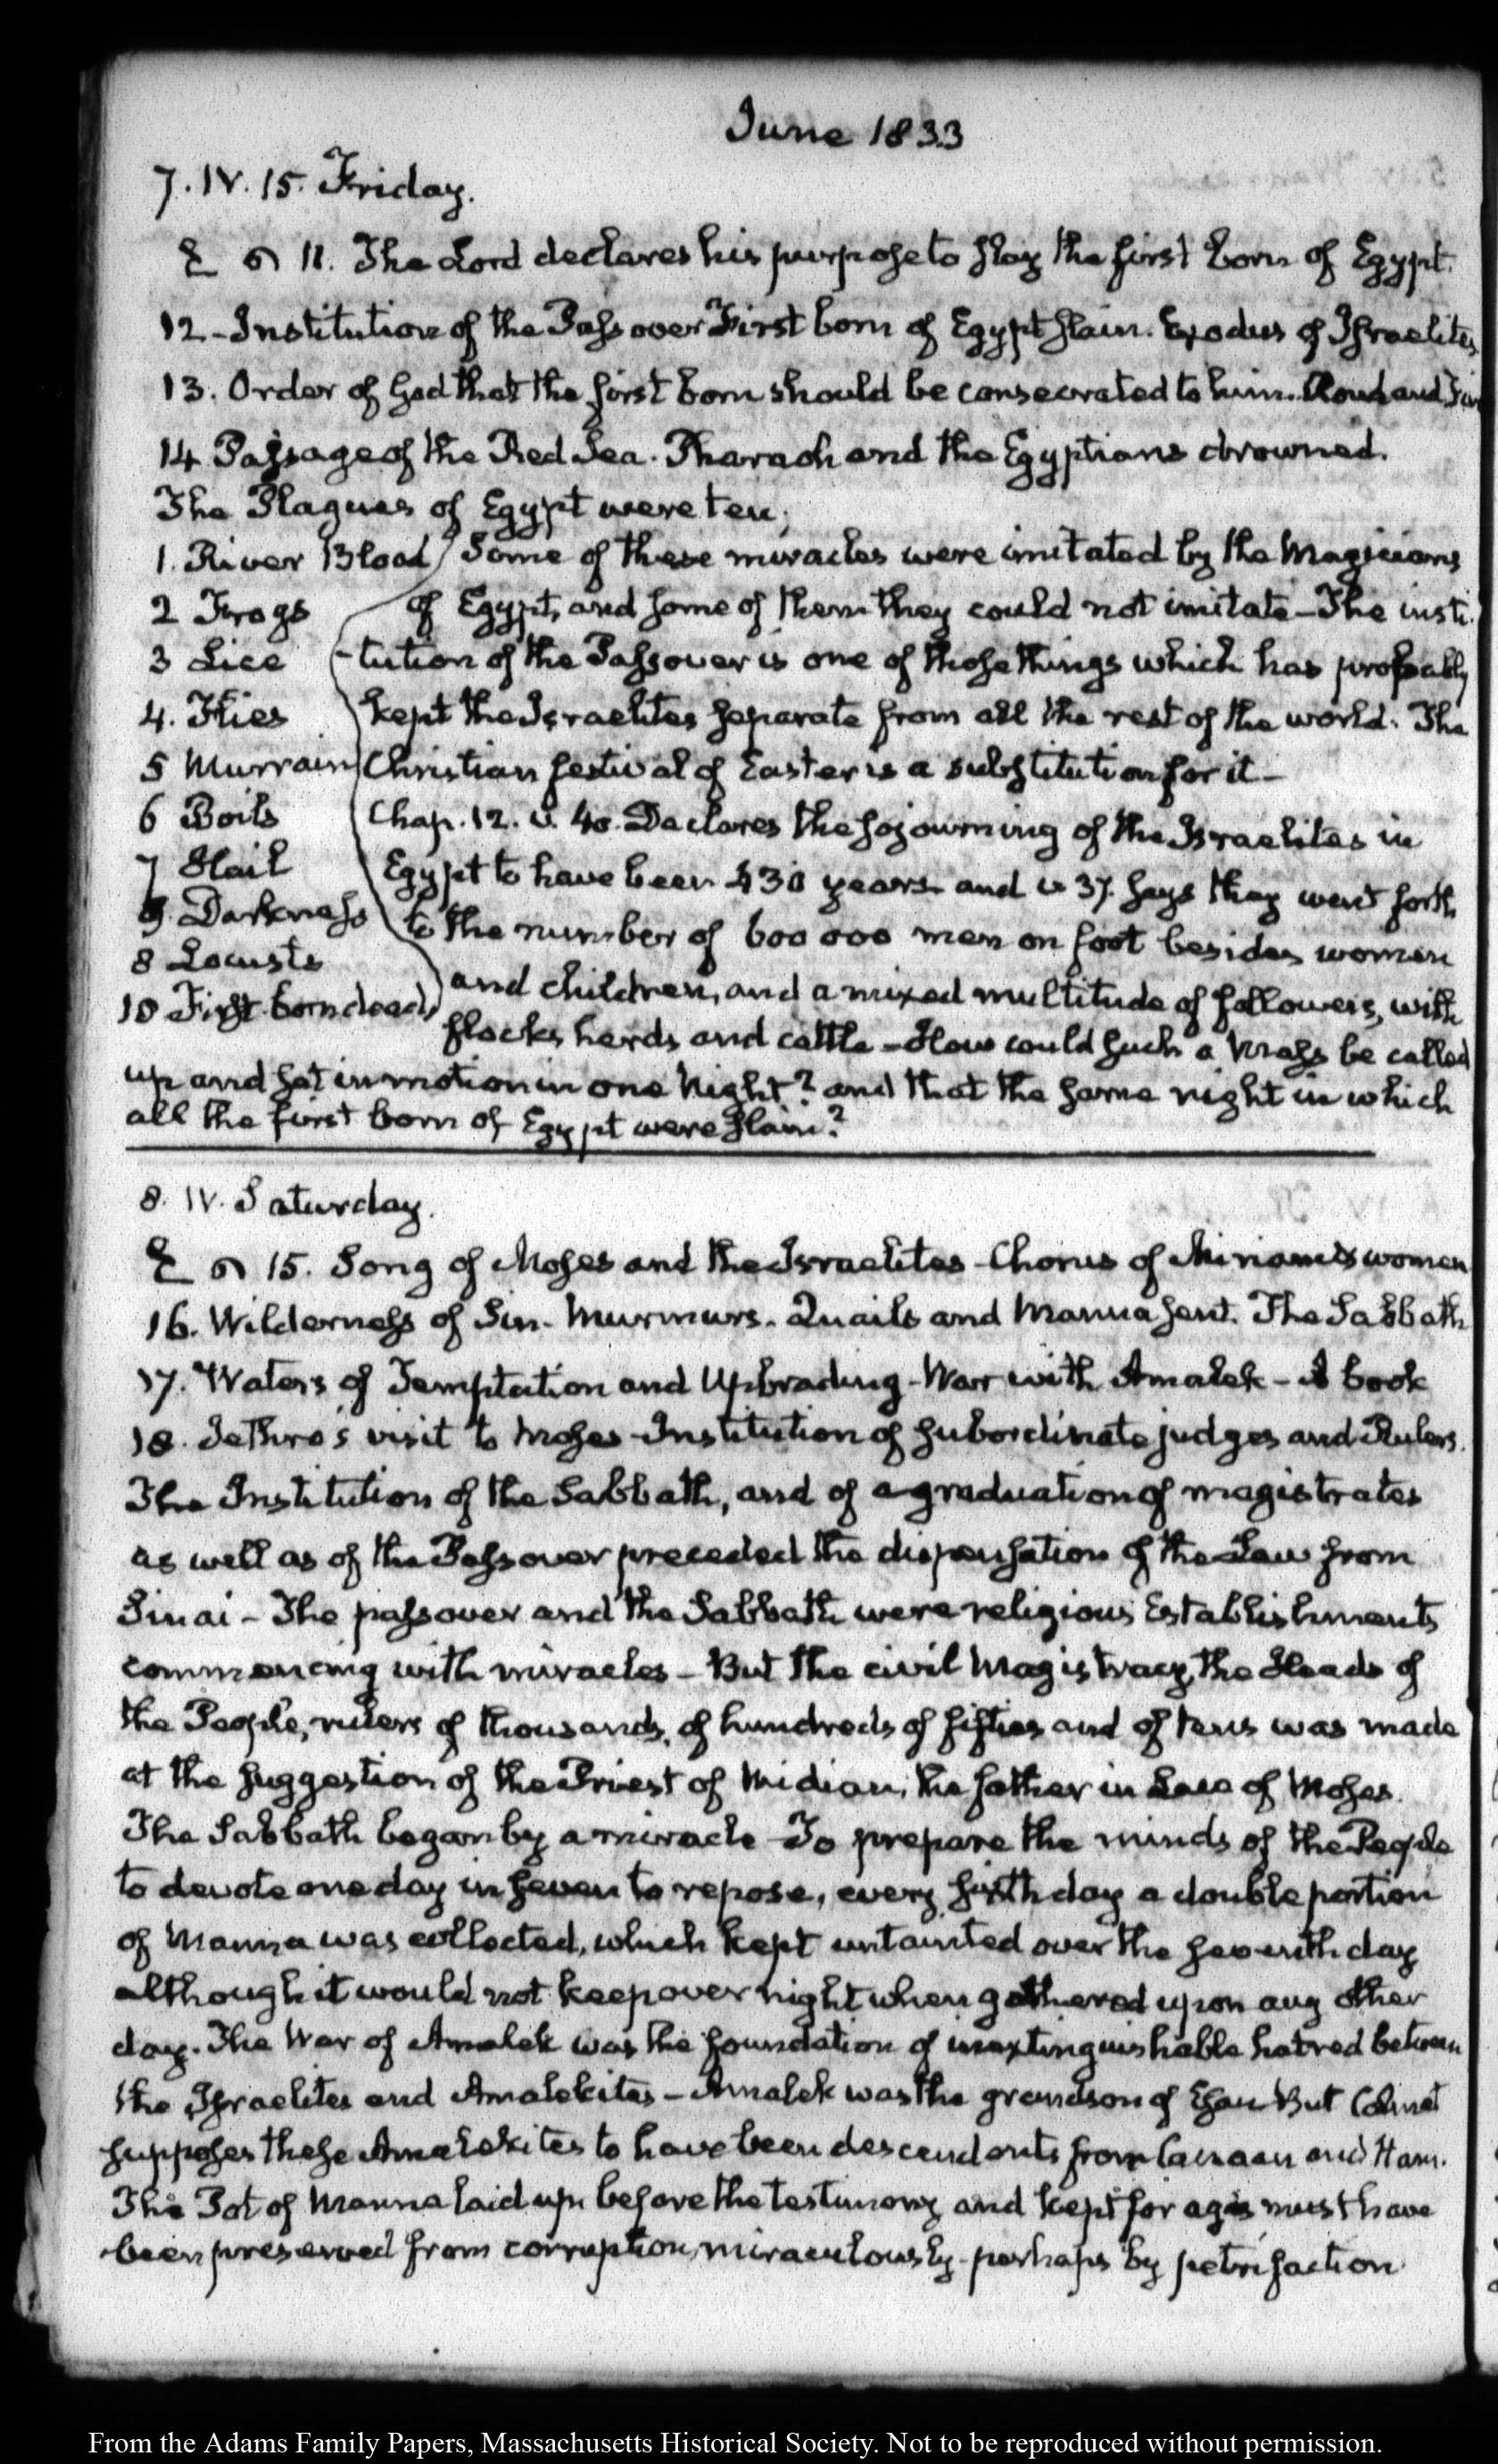 June 1833
7. IV. 15. Friday.
11. The Lord declares his purpose to slay the first born of Egypt.
12 - Institution of the Passover First born of Egypt slain. Exodus of Israelites
13. Order of God that the first born should be consecrated to him. Cloud and Fire
14 Passage of the Red Sea. Pharaoh and the Egyptians drowned.
The Plagues of Egypt were ten;
1. River Blood Some of these miracles were imitated by the Magicians
2 Frogs of Egypt, and some of them they could not imitate - The insti-
3 Lice -tution of the Passover is one of those things which has probably
4. Flies kept the Israelites separate from all the rest of the world. The
5 Murrain Christian festival of Easter is a substitution for it -
6 Boils Chap. 12. v. 40. Declares the sojourning of the Israelites in
7 Hail Egypt to have been 430 years and v 37. says they went forth
9. Darkness to the number of 600 000 men on foot besides women
8 Locusts and children, and a mixed multitude of followers, with
10 First born dead flocks herds and cattle - How could such a Mass be called
up and set in motion in one Night? and that the same night in which
all the first born of Egypt were slain?
8. IV. Saturday.
15. Song of Moses and the Israelites - Chorus of Miriam's women
16. Wilderness of Sin. Murmurs. Quails and Manna sent. The Sabbath
17. Waters of Temptation and Upbrading - War with Amalek - A book
18. Jethro's visit to Moses - Institution of subordinate judges and Rulers.
The Institution of the Sabbath, and of a graduation of magistrates
as well as of the Passover preceded the dispensation of the Law from
Sinai - The passover and the Sabbath were religious Establishments
commencing with miracles - But the civil Magistracy, the Heads of
the People, rulers of thousands, of hundreds of fifties and of tens was made
at the suggestion of the Priest of Midian, the father in Law of Moses.
The Sabbath began by a miracle - To prepare the minds of the People
to devote one day in seven to repose, every sixth day a double portion
of Manna was collected, which kept untainted over the seventh day
although it would not keep over night when gathered upon any other
day. The War of Amalek was the foundation of inextinguishable hatred between
the Israelites and Amalekites - Amalek was the grandson of Esau But Calmet
supposes these Amalekites to have been descendants from Canaan and Ham.
The Pot of Manna laid up before the testimony and kept for ages must have
been preserved from corruption, miraculously - perhaps by petrifaction
From the Adams Family Papers, Massachusetts Historical Society. Not to be reproduced without permission.